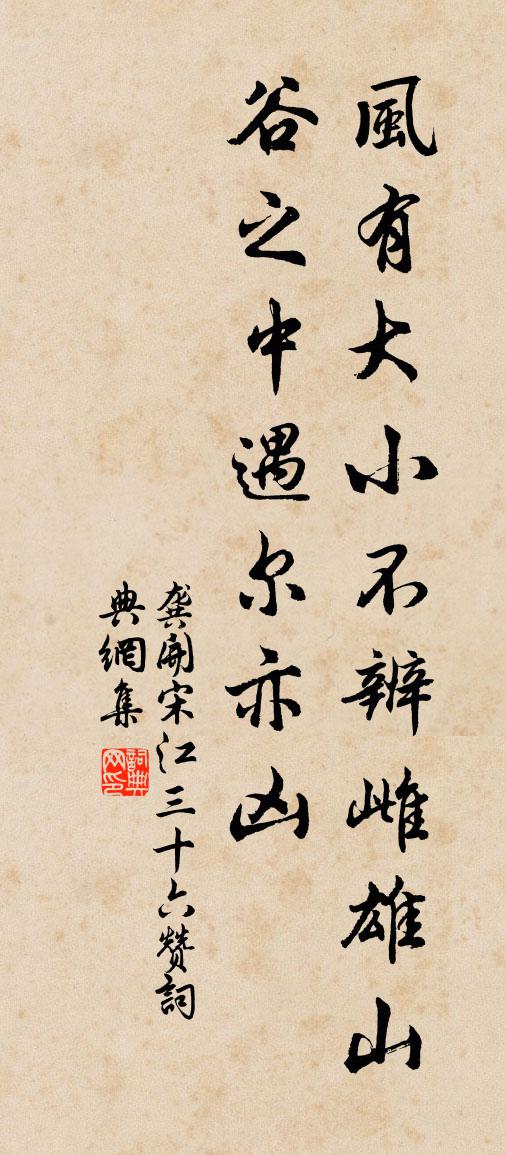 風有大小不辨雌雄山
谷之中遇尔亦凶
龔開宋江三十六赞詞
典網集
詞典
网印